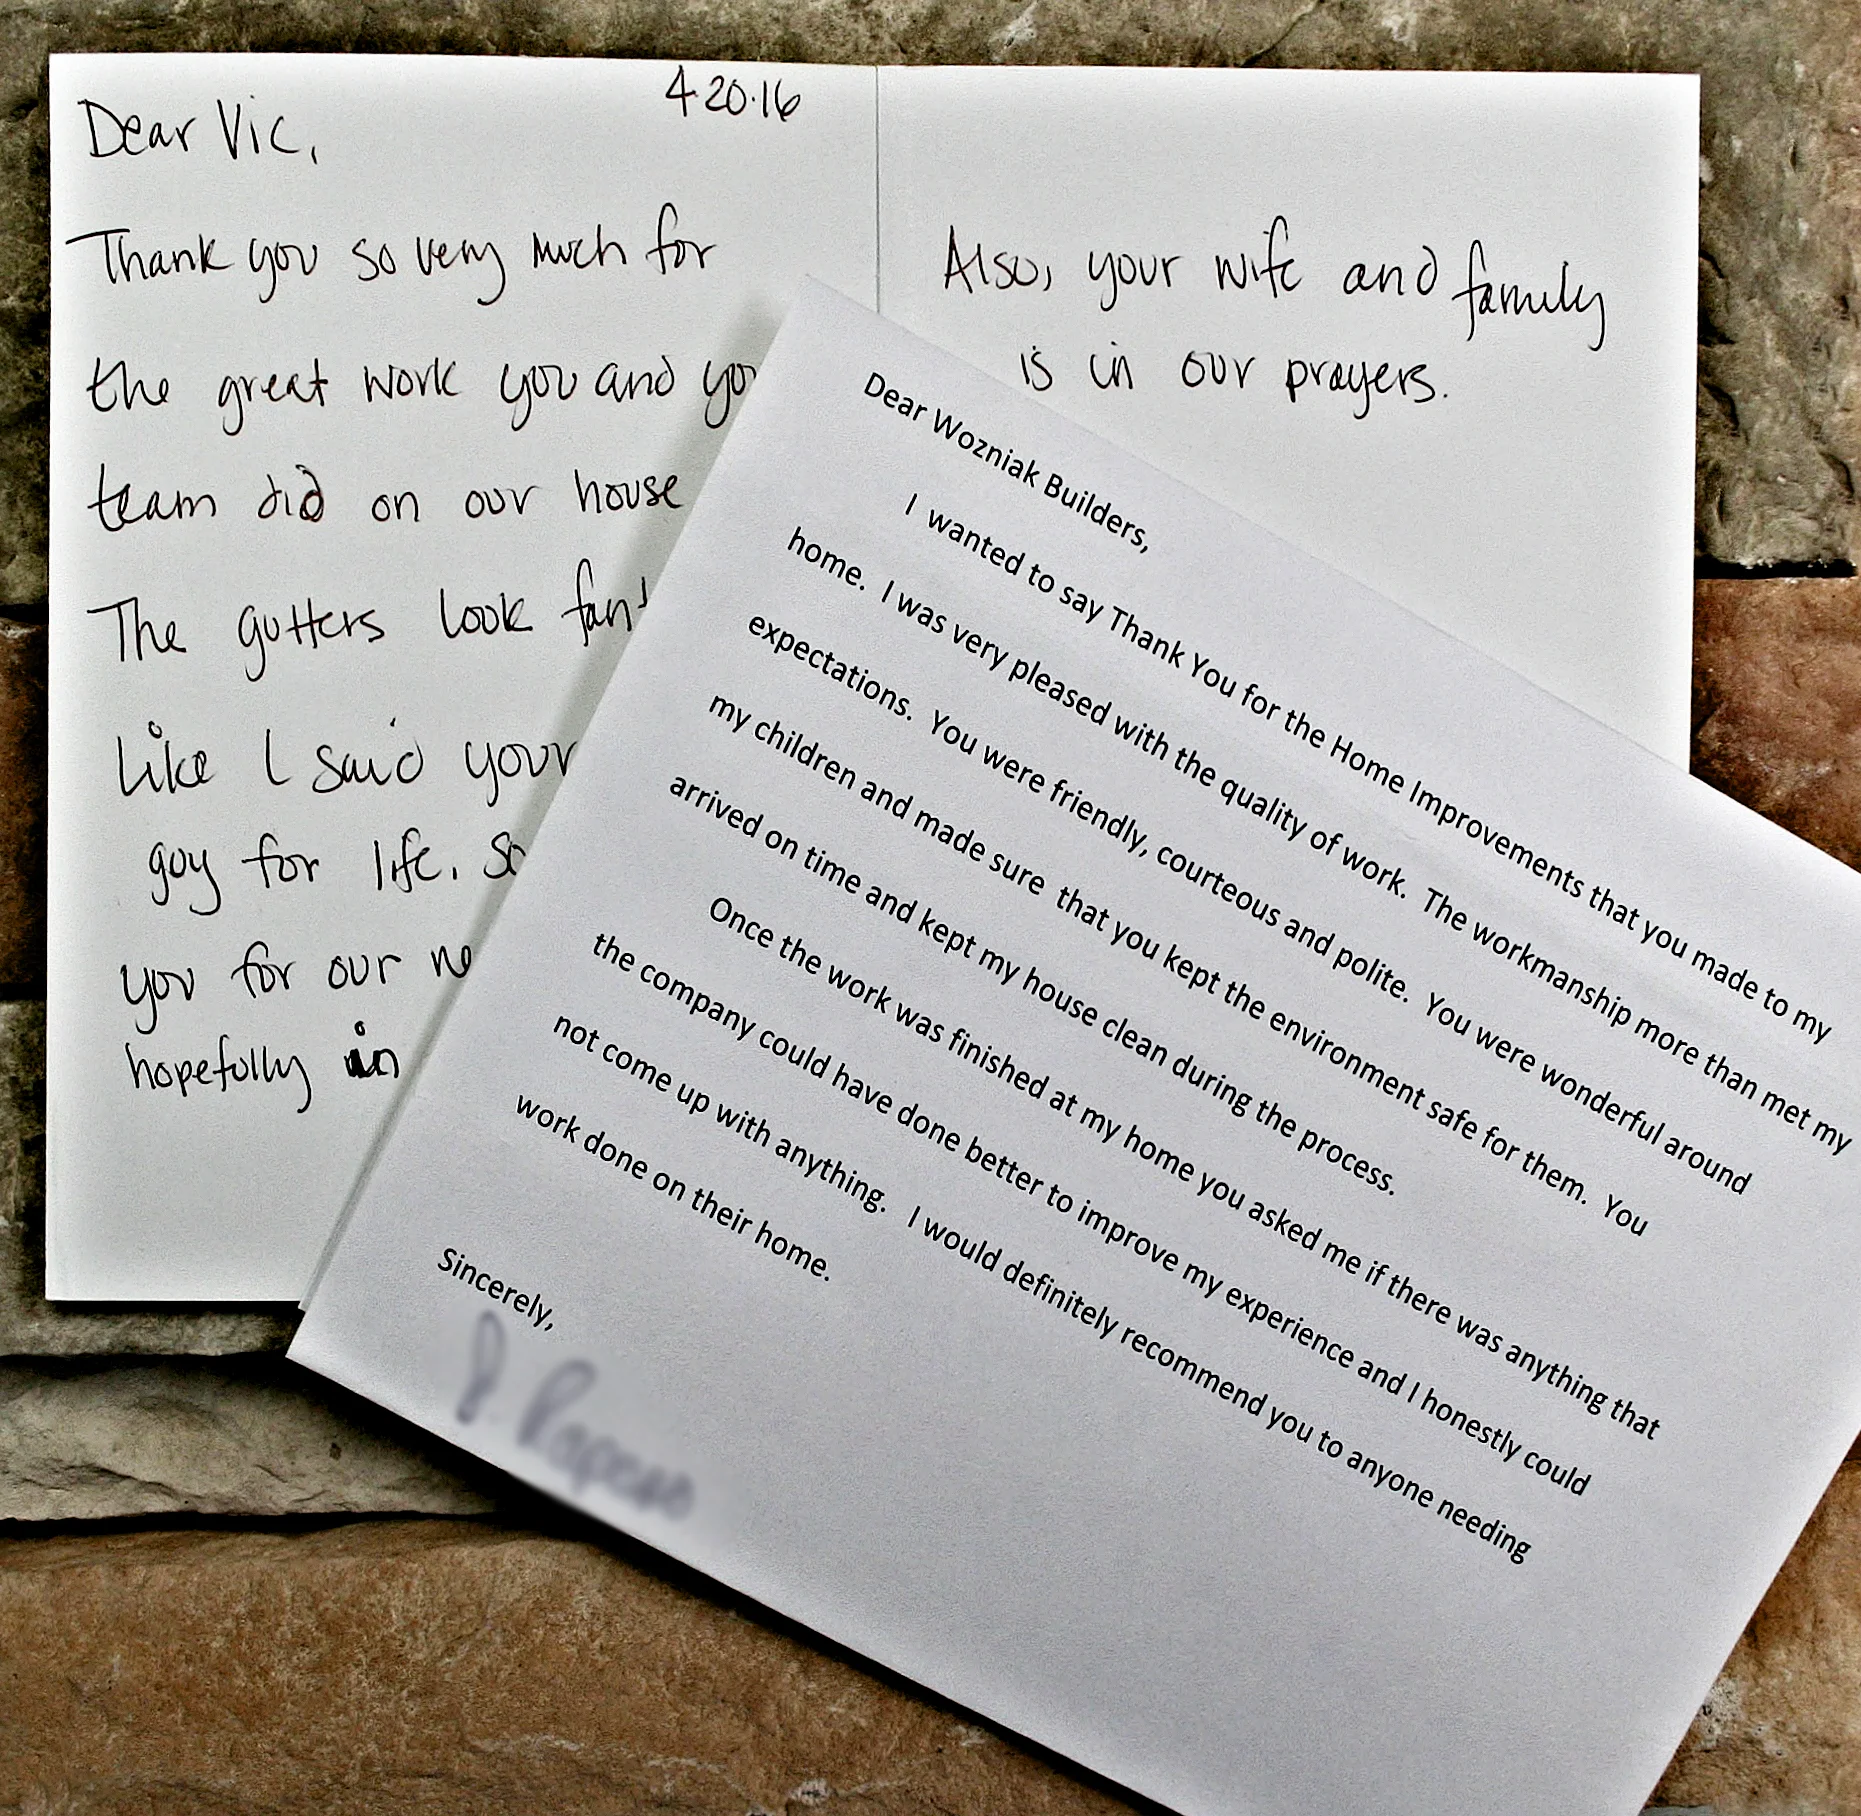 4.20.16
Dear Vic,
Thank you so very much for
the great work you and
team did on our house
The gutters look
Like I said your
guy for life. So
you for our
hopefully in
Also, your wife and family
is in our prayers.
Dear Wozniak Builders,
I wanted to say Thank You for the Home Improvements that you made to my
home. I was very pleased with the quality of work. The workmanship more than met my
expectations. You were friendly, courteous and polite. You were wonderful around
my children and made sure that you kept the environment safe for them. You
arrived on time and kept my house clean during the process.
Once the work was finished at my home you asked me if there was anything that
the company could have done better to improve my experience and I honestly could
not come up with anything. I would definitely recommend you to anyone needing
work done on their home.
Sincerely,